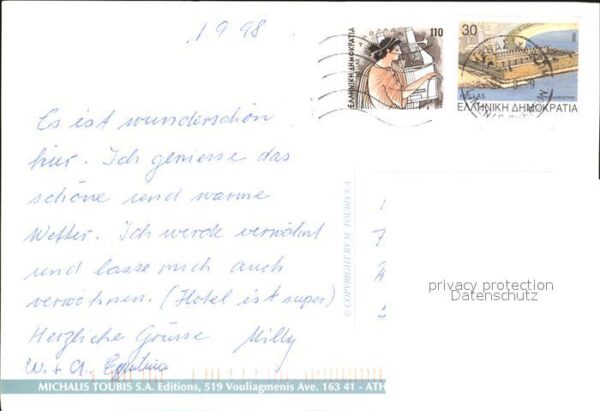 1.9.98
110
ΕΛΛΗΝΙΚΗ ΔΗΜΟΚΡΑΤΙΑ
30
HELLAS
ΕΛΛΗΝΙΚΗ ΔΗΜΟΚΡΑΤΙΑ
Es ist wunderschön
hier. Ich geniesse das
schöne und warme
Wetter. Ich werde verwöhnt
und lasse mich auch
verwöhnen. (Hotel ist super)
Herzliche Grüsse Milly
W. + A.
© COPYRIGHT BY M. TOUBIS S.A.
privacy protection
Datenschutz
MICHALIS TOUBIS S.A. Editions, 519 Vouliagmenis Ave. 163 41 - ATH